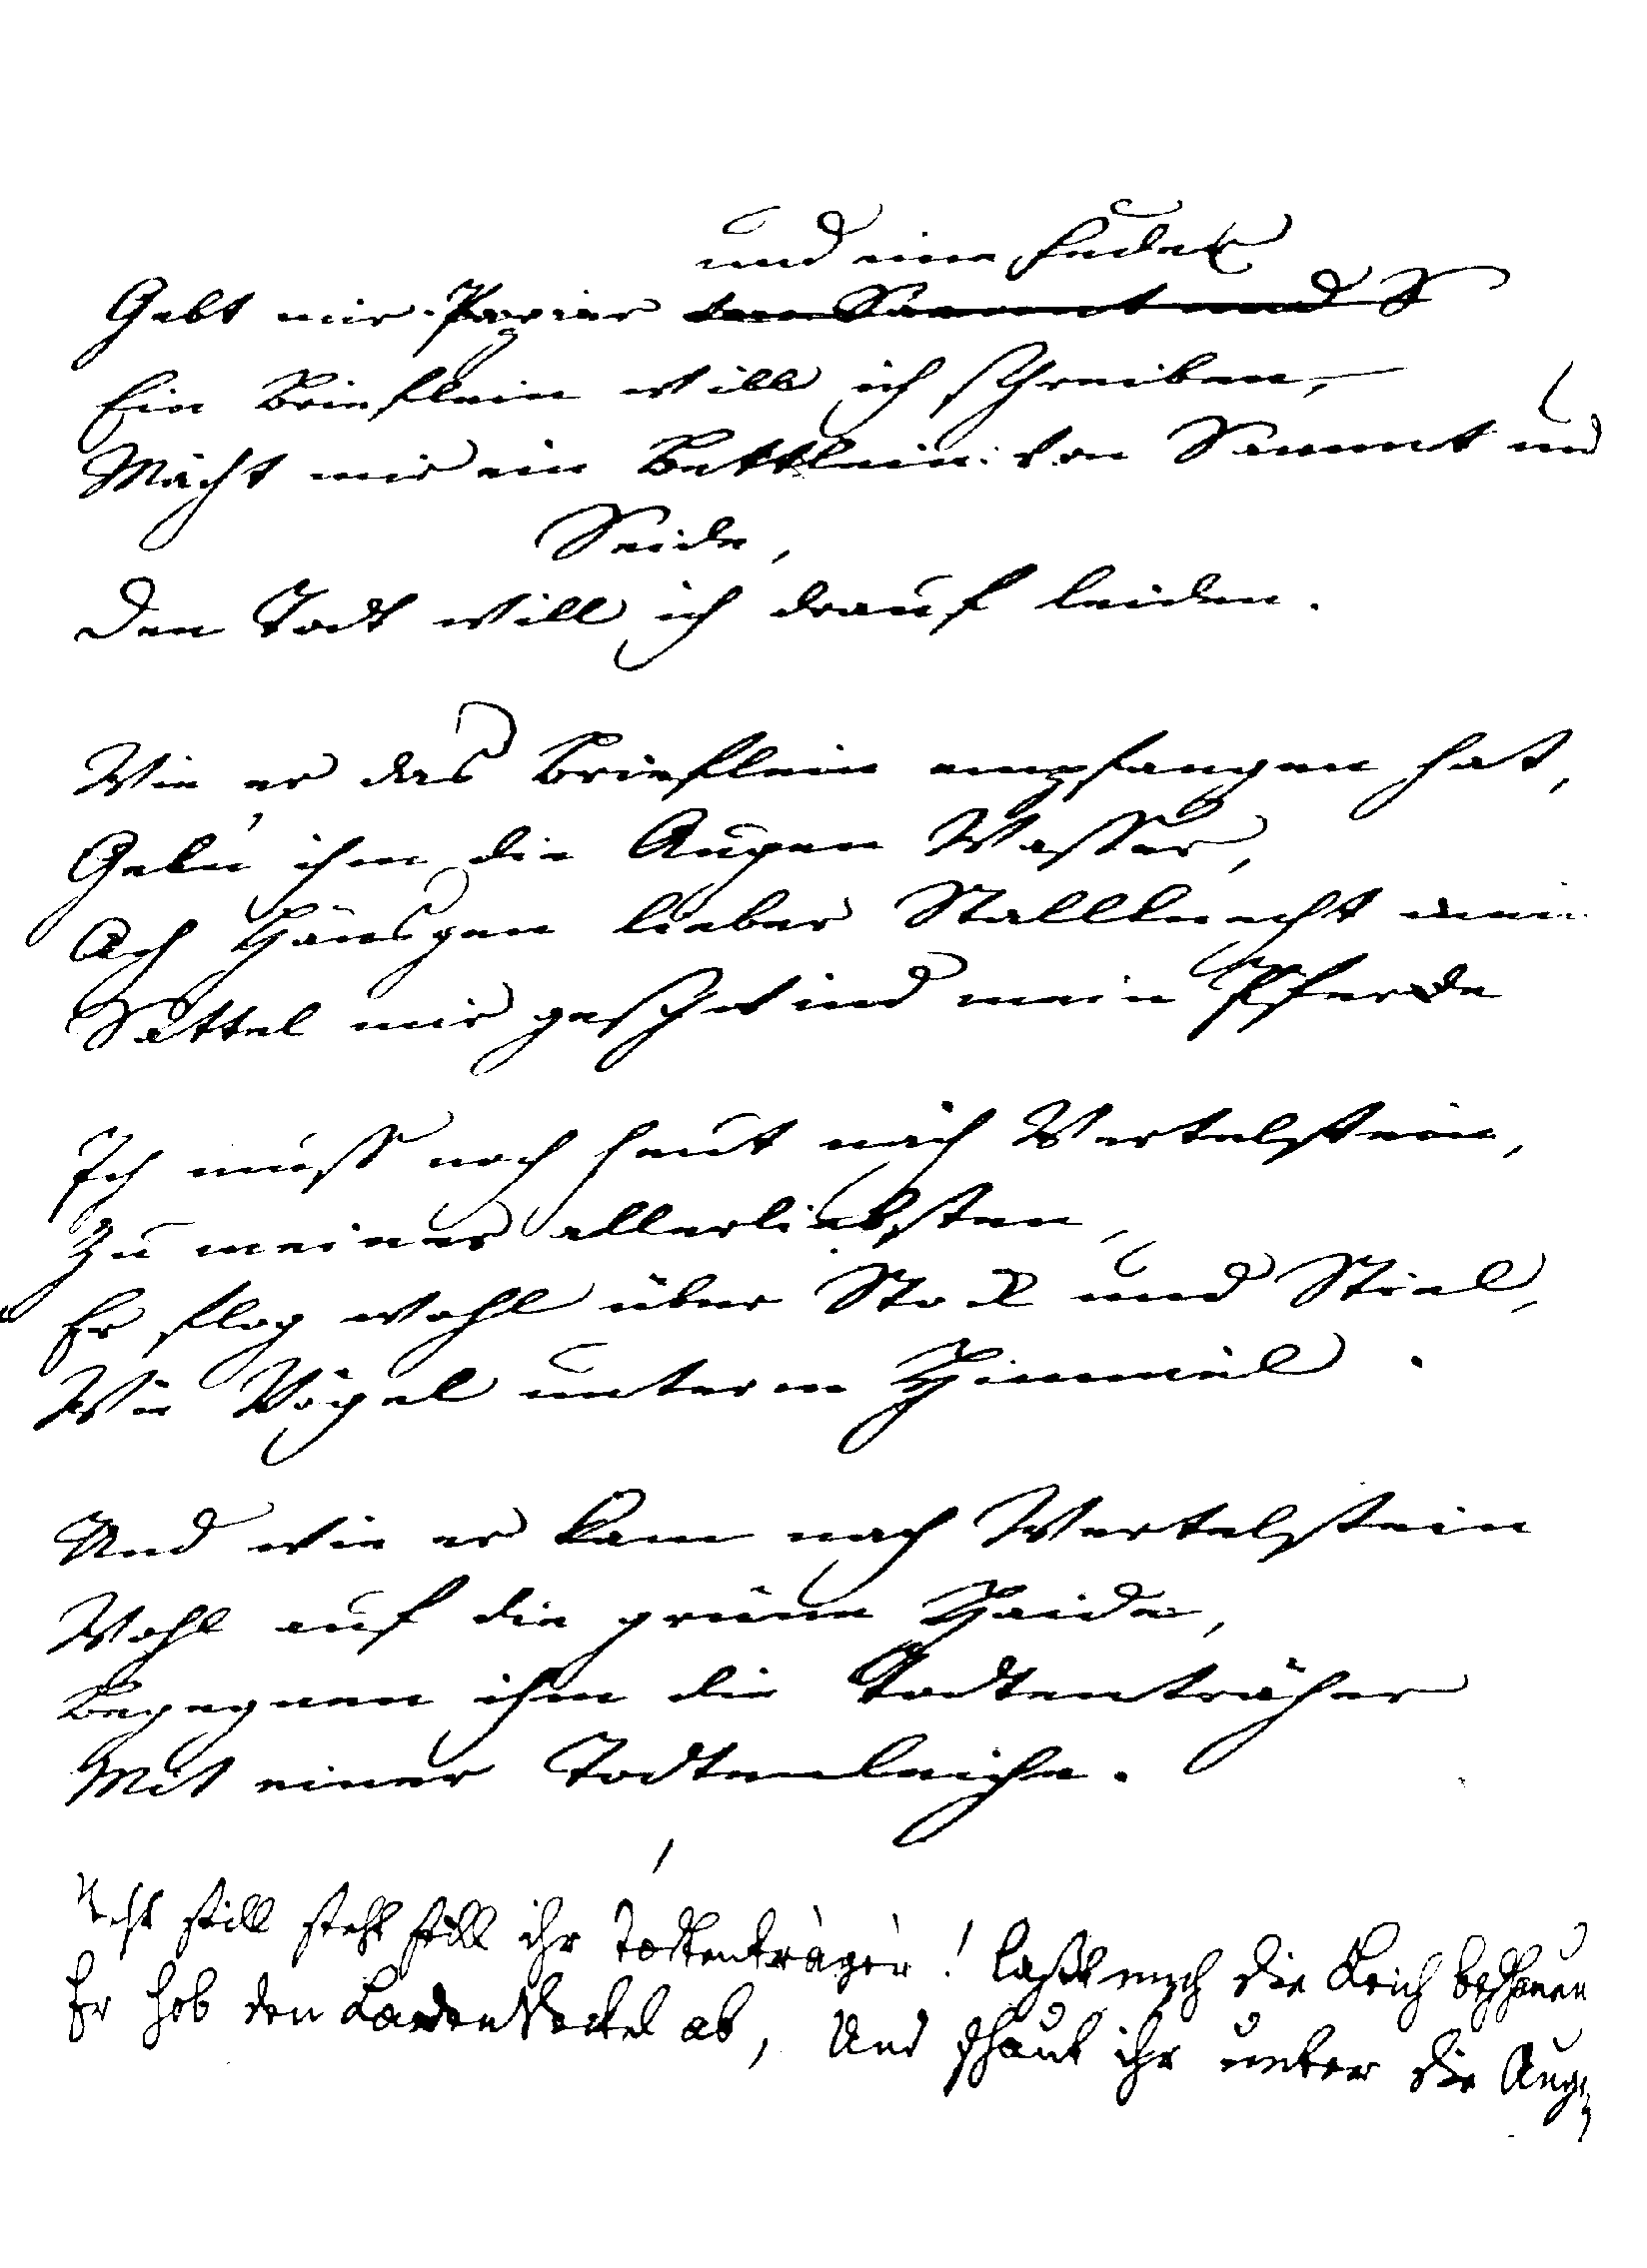 und eine Feder
Gebt mir Papier von Sammt und S
Ein Brieflein will ich schreiben,
Macht mir ein Bettlein von Sammt und
Seide,
Den Todt will ich drauf leiden.
Wie er das Brieflein empfangen hat,
Gebn ihm die Augen Wasser,
Ach Hänsgen lieber Stallknecht mein
Sattel mir geschwind mein Pferde
Ich muss noch heut nach Wertelstein,
Zu meiner allerliebsten,
Er flog wohl über Stock und Stiel,
Wie Vögel unterm Himmel.
Und wie er kam nach Wertelstein
Wohl auf die grüne Haide,
Begegnen ihm die Todtenträher
Mit einer Todtenleiche.
still steht still ihr Todtenträger! laßt mich die Leich beschauen
Er hob den ab, Und schaut ihr unter die Augen